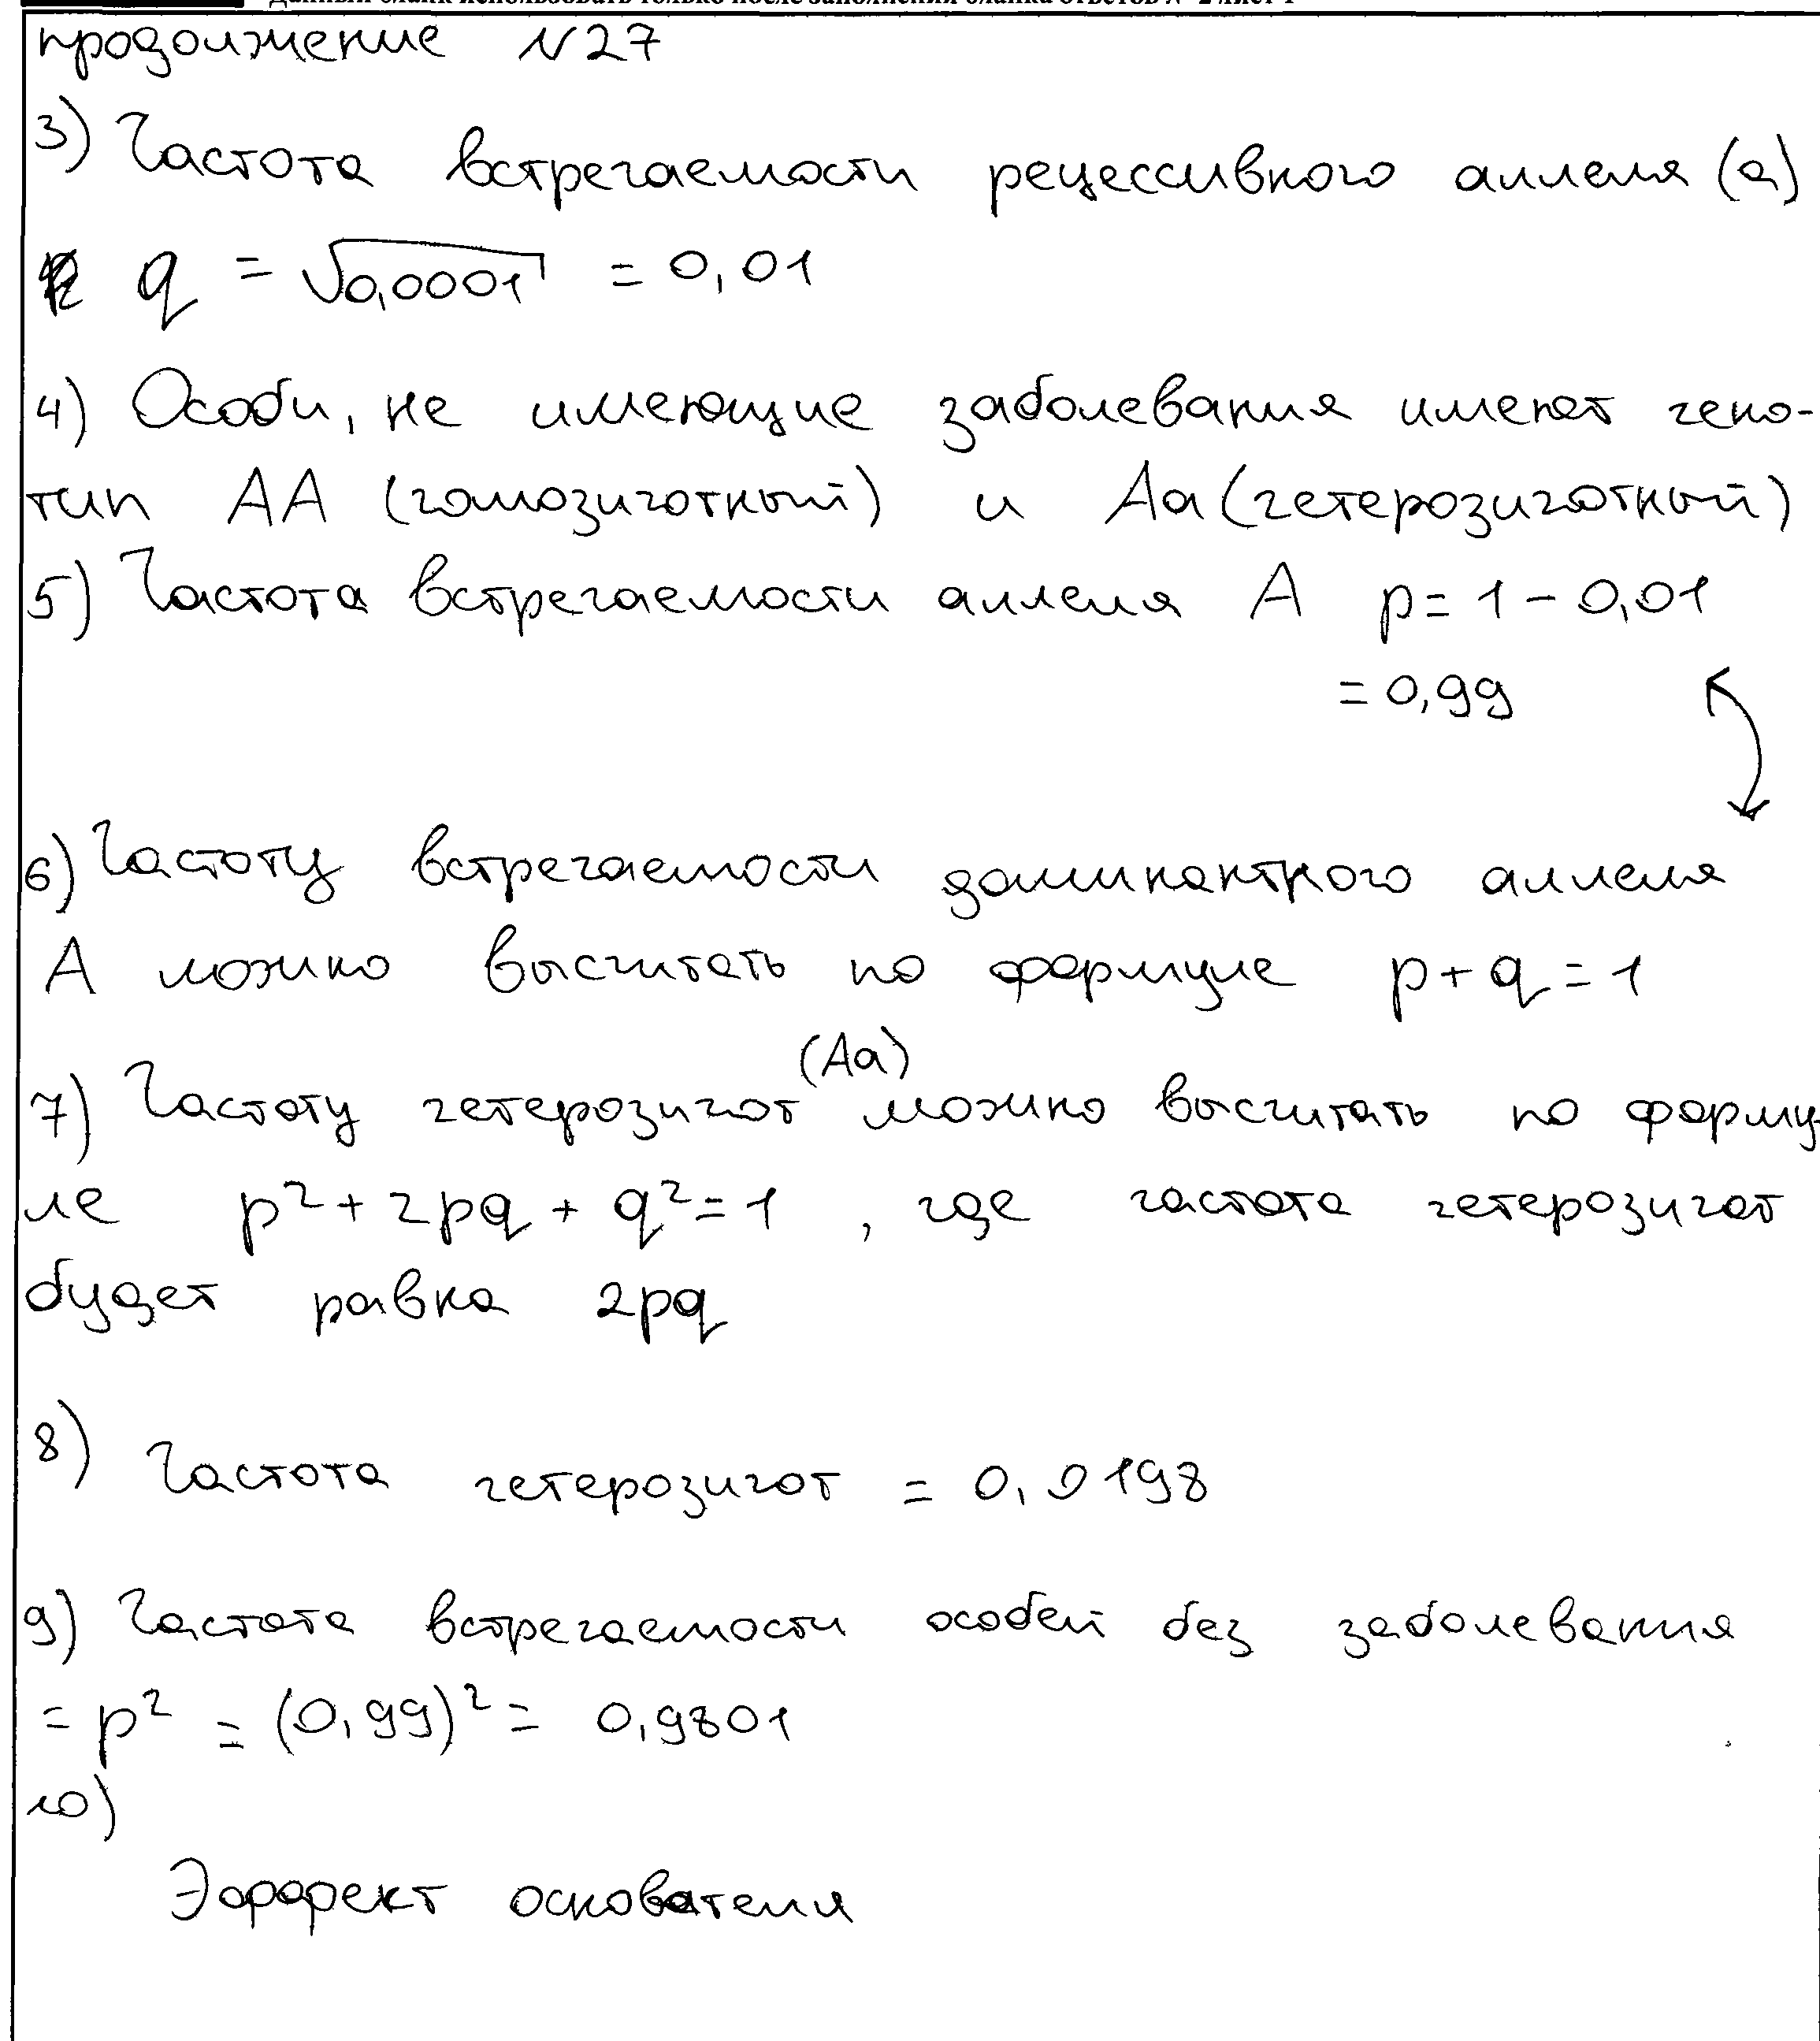 Данный бланк использовать только после заполнения бланка ответов № 2 лист 1
продолжение N27
3) Частота встречаемости рецессивного аллеля (a)
q = √0,0001 = 0,01
4) Особи, не имеющие заболевания имеют гено-
тип AA (гомозиготный) и Aa (гетерозиготный)
5) Частота встречаемости аллеля A p = 1 - 0,01
= 0,99
6) Частоту встречаемости доминантного аллеля
A можно высчитать по формуле p + q = 1
(Aa)
7) Частоту гетерозигот можно высчитать по форму-
ле p² + 2pq + q² = 1 , где частота гетерозигот
будет равна 2pq
8) Частота гетерозигот = 0,0198
9) Частота встречаемости особей без заболевания
= p² = (0,99)² = 0,9801
10)
Эффект основателя